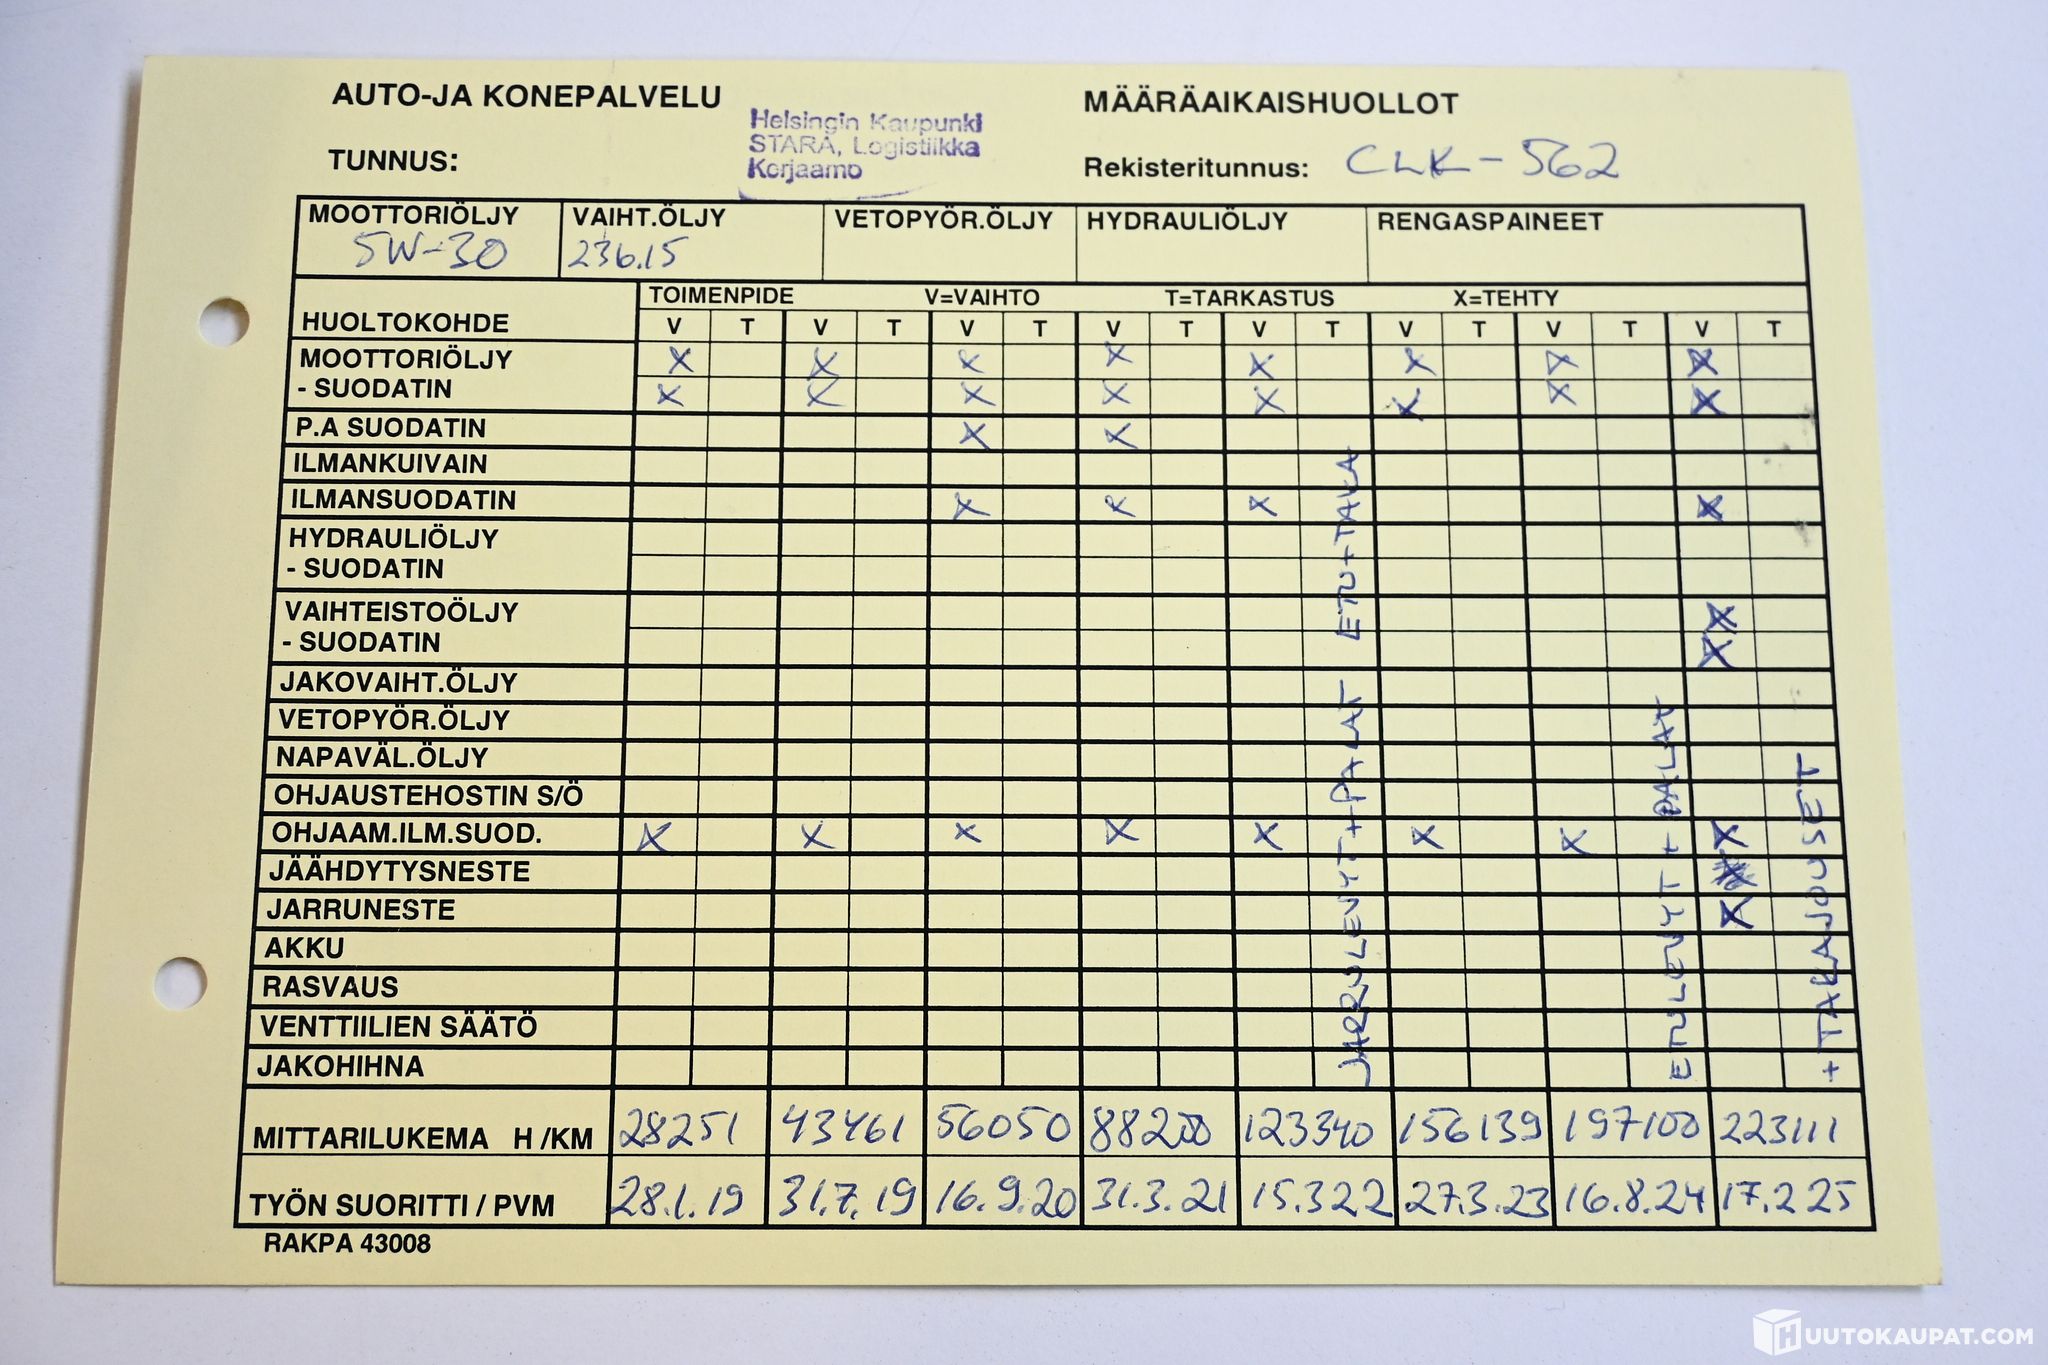 AUTO-JA KONEPALVELU
MÄÄRÄAIKAISHUOLLOT
Helsingin Kaupunki
STARA, Logistiikka
Korjaamo
TUNNUS:
Rekisteritunnus: CLK-562
MOOTTORIÖLJY VAIHT.ÖLJY VETOPYÖR.ÖLJY HYDRAULIÖLJY RENGASPAINEET
5W-30 236.15
TOIMENPIDE V=VAIHTO T=TARKASTUS X=TEHTY
HUOLTOKOHDE V T V T V T V T V T V T V T V T
MOOTTORIÖLJY X X X X X X X X
- SUODATIN X X X X X X X X
P.A SUODATIN X X
ILMANKUIVAIN
ILMANSUODATIN X X X X
HYDRAULIÖLJY
- SUODATIN
VAIHTEISTOÖLJY X
- SUODATIN X
JAKOVAIHT.ÖLJY
VETOPYÖR.ÖLJY
NAPAVÄL.ÖLJY
OHJAUSTEHOSTIN S/Ö
OHJAAM.ILM.SUOD. X X X X X X X X
JÄÄHDYTYSNESTE
JARRUNESTE X
AKKU
RASVAUS
VENTTIILIEN SÄÄTÖ
JAKOHIHNA
JARRULEVYT+PALAT ETU+TAKA
ETULEVYT + PALAT
+ TAKAJOUSET
MITTARILUKEMA H /KM 28251 43461 56050 88200 123340 156139 197100 223111
TYÖN SUORITTI / PVM 28.1.19 31.7.19 16.9.20 31.3.21 15.3.22 27.3.23 16.8.24 17.2.25
RAKPA 43008
HUUTOKAUPAT.COM